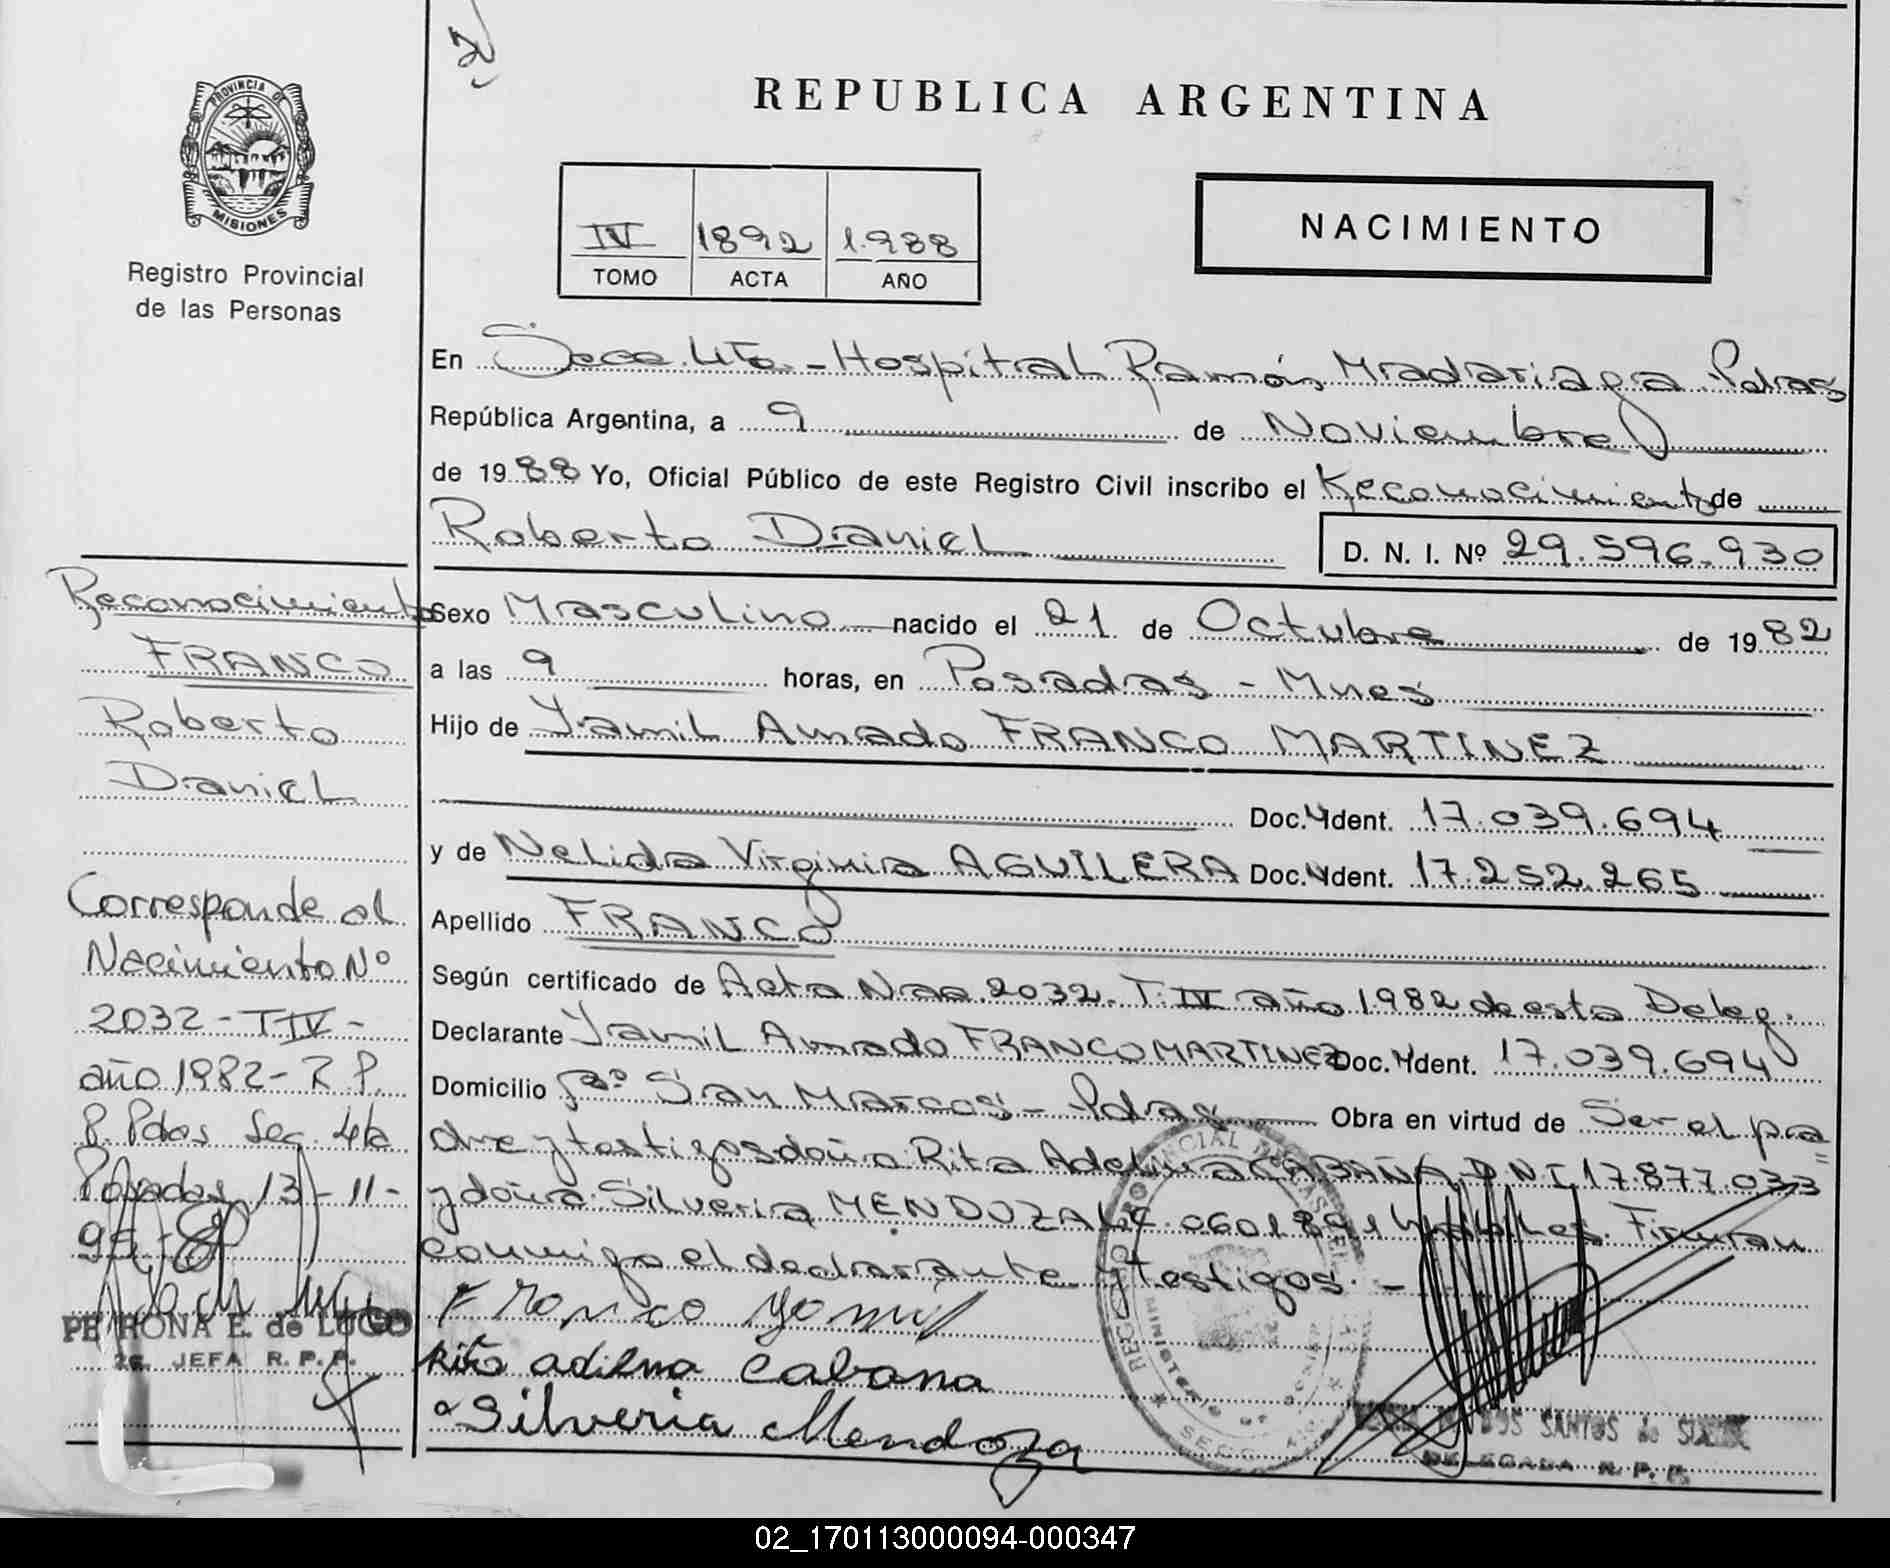 REPUBLICA ARGENTINA
PROVINCIA DE
MISIONES
Registro Provincial
de las Personas
IV 1892 1.988
TOMO ACTA AÑO
NACIMIENTO
En Secc. 4ta. - Hospital Ramón Madariaga Pdas
República Argentina, a 9 de Noviembre
de 1988 Yo, Oficial Público de este Registro Civil inscribo el Reconocimiento de
Roberto Daniel
D. N. I. Nº 29.596.930
Sexo Masculino nacido el 21 de Octubre de 1982
a las 9 horas, en Posadas - Mnes
Hijo de Yamil Amado FRANCO MARTINEZ
Doc. Ydent. 17.039.694
y de Nelida Virginia AGUILERA Doc. Ydent. 17.252.265
Apellido FRANCO
Según certificado de Acta Nac. 2032. T. IV año 1.982 de esta Deleg.
Declarante Yamil Amado FRANCO MARTINEZ Doc. Ydent. 17.039.694
Domicilio Bº San Marcos - Pdas Obra en virtud de Ser el pa
dre y testigos doña Rita Adelina CABAÑA D.N.I 17.877.033
y doña Silveria MENDOZA L.C. Firman
conmigo el declarante y testigos. -
Franco Yamil
Rita adelma Cabana
Silveria Mendoza
DOS SANTOS de
DELEGADA R. P. P.
Reconocimiento
FRANCO
Roberto
Daniel
Corresponde al
Nacimiento Nº
2032 - T IV -
año 1982 - R. P.
P. Pdas Sec. 4ta
Posadas, 13-11-
95.
PETRONA E. de LUGO
JEFA R. P. P.
02_170113000094-000347